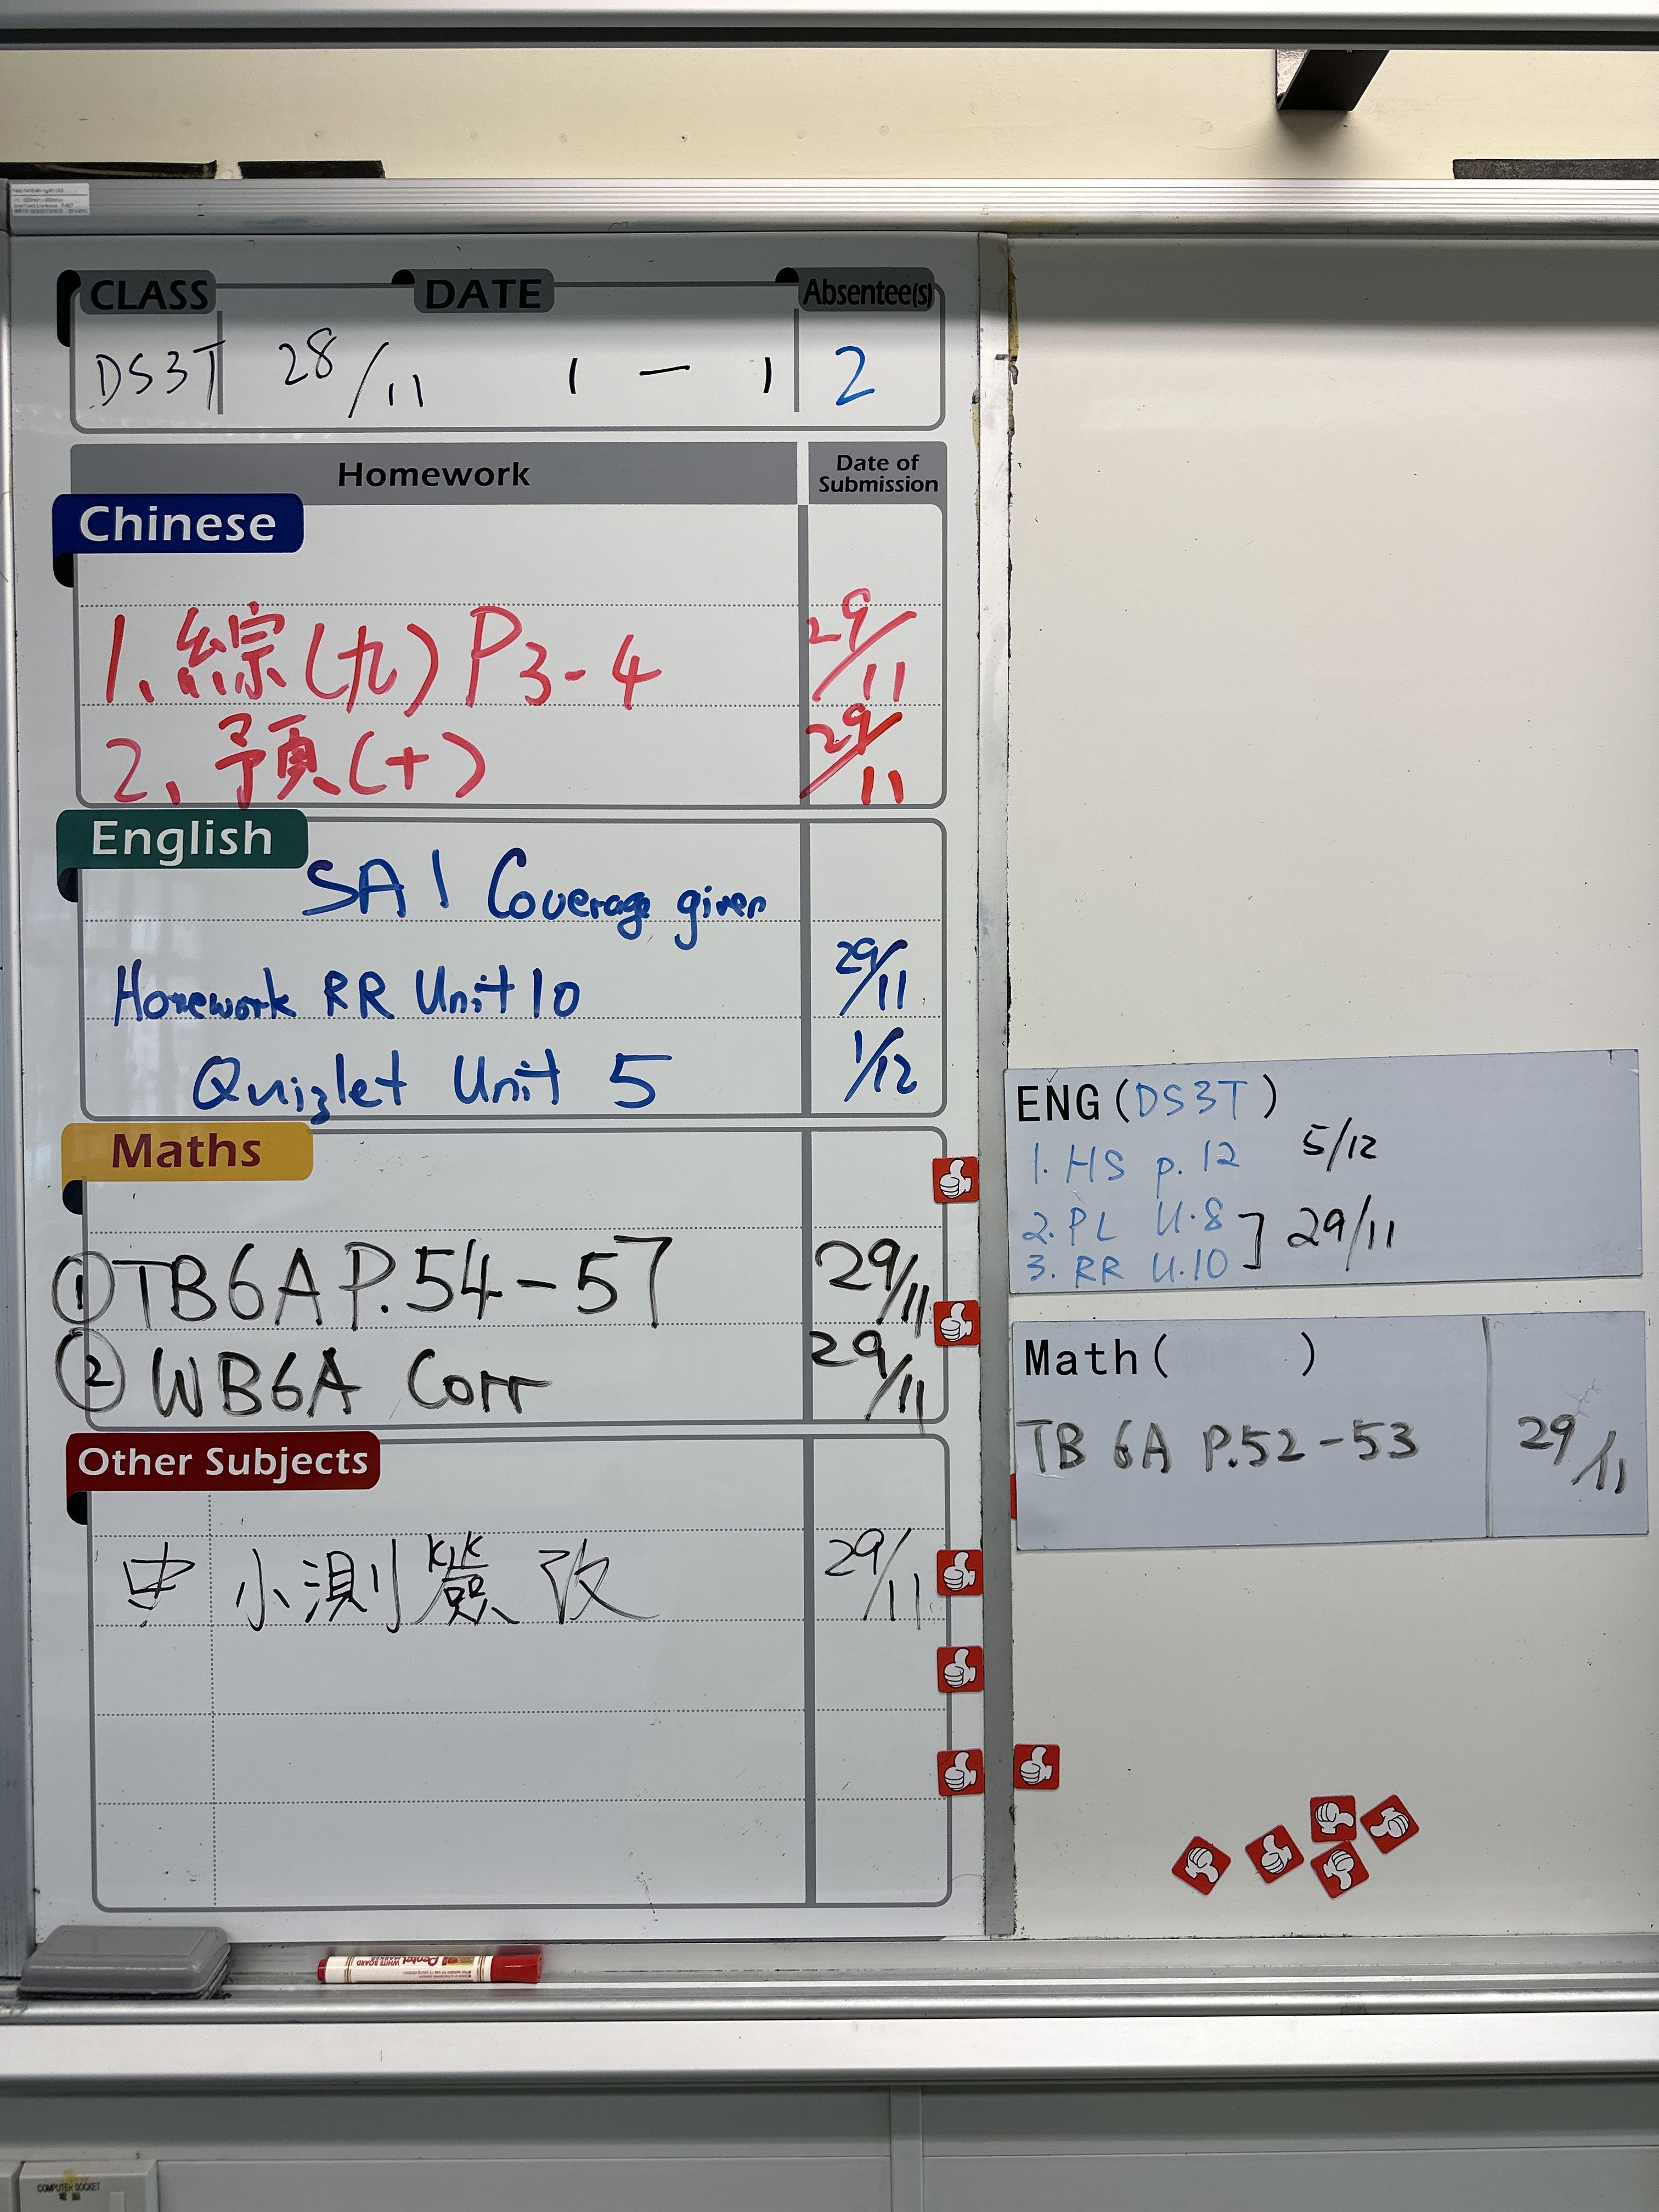 CLASS DATE Absentee(s)
DS3T 28/11 1 — 1 2
Homework Date of Submission
Chinese
1、綜(九) P3-4 29/11
2、預(十) 29/11
English
SA1 Coverage given
Homework RR Unit 10 29/11
Quizlet Unit 5 1/12
Maths
① TB6A P.54-57 29/11
② WB6A Corr 29/11
Other Subjects
小測簽改 29/11
ENG(DS3T)
1. HS p.12 5/12
2. PL U.8
3. RR U.10 ] 29/11
Math( )
TB 6A P.52-53 29/11
Pentel
WHITE BOARD
MARKER
COMPUTER SOCKET